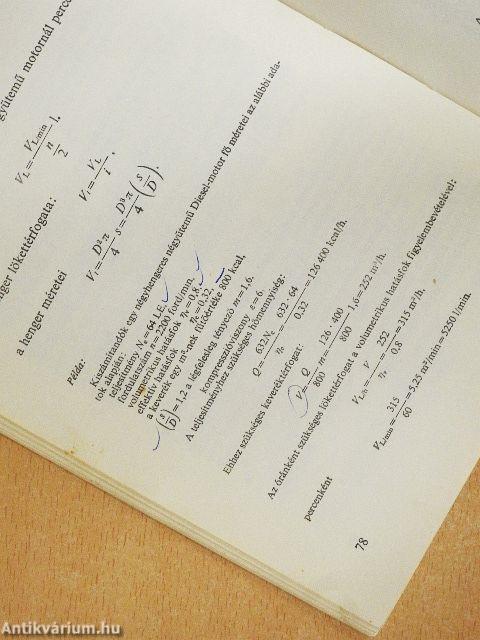 gyütemű motornál perc
V_L = V_L/min / (n/2) l.
nger lökettérfogata:
V_i = V_L / i .
a henger méretei
V_i = D²π/4 s = D³π/4 (s/D).
Példa:
Kiszámítandók egy négyhengeres négyütemű Diesel-motor fő méretei az alábbi ada-
tok alapján:
teljesítmény N_e = 64 LE,
fordulatszám n = 2200 ford/min,
volumetrikus hatásfok η_v = 0,8,
effektív hatásfok η_e = 0,32,
a keverék egy m³-nek fűtőértéke 800 kcal,
(s/D) = 1,2 a légfelesleg tényező m = 1,6.
kompresszóviszony ε = 6.
A teljesítményhez szükséges hőmennyiség:
Q = 632N_e / η_e = 632 · 64 / 0,32 = 126 400 kcal/h.
Ehhez szükséges keveréktérfogat:
V = Q/800 m = 126 · 400 / 800 1,6 = 252 m³/h.
Az óránként szükséges lökettérfogat a volumetrikus hatásfok figyelembevételével:
V_L/h = V/η_v = 252/0,8 = 315 m³/h.
percenként
V_L/min = 315/60 = 5,25 m³/min = 5250 l/min.
78
Antikvárium.hu